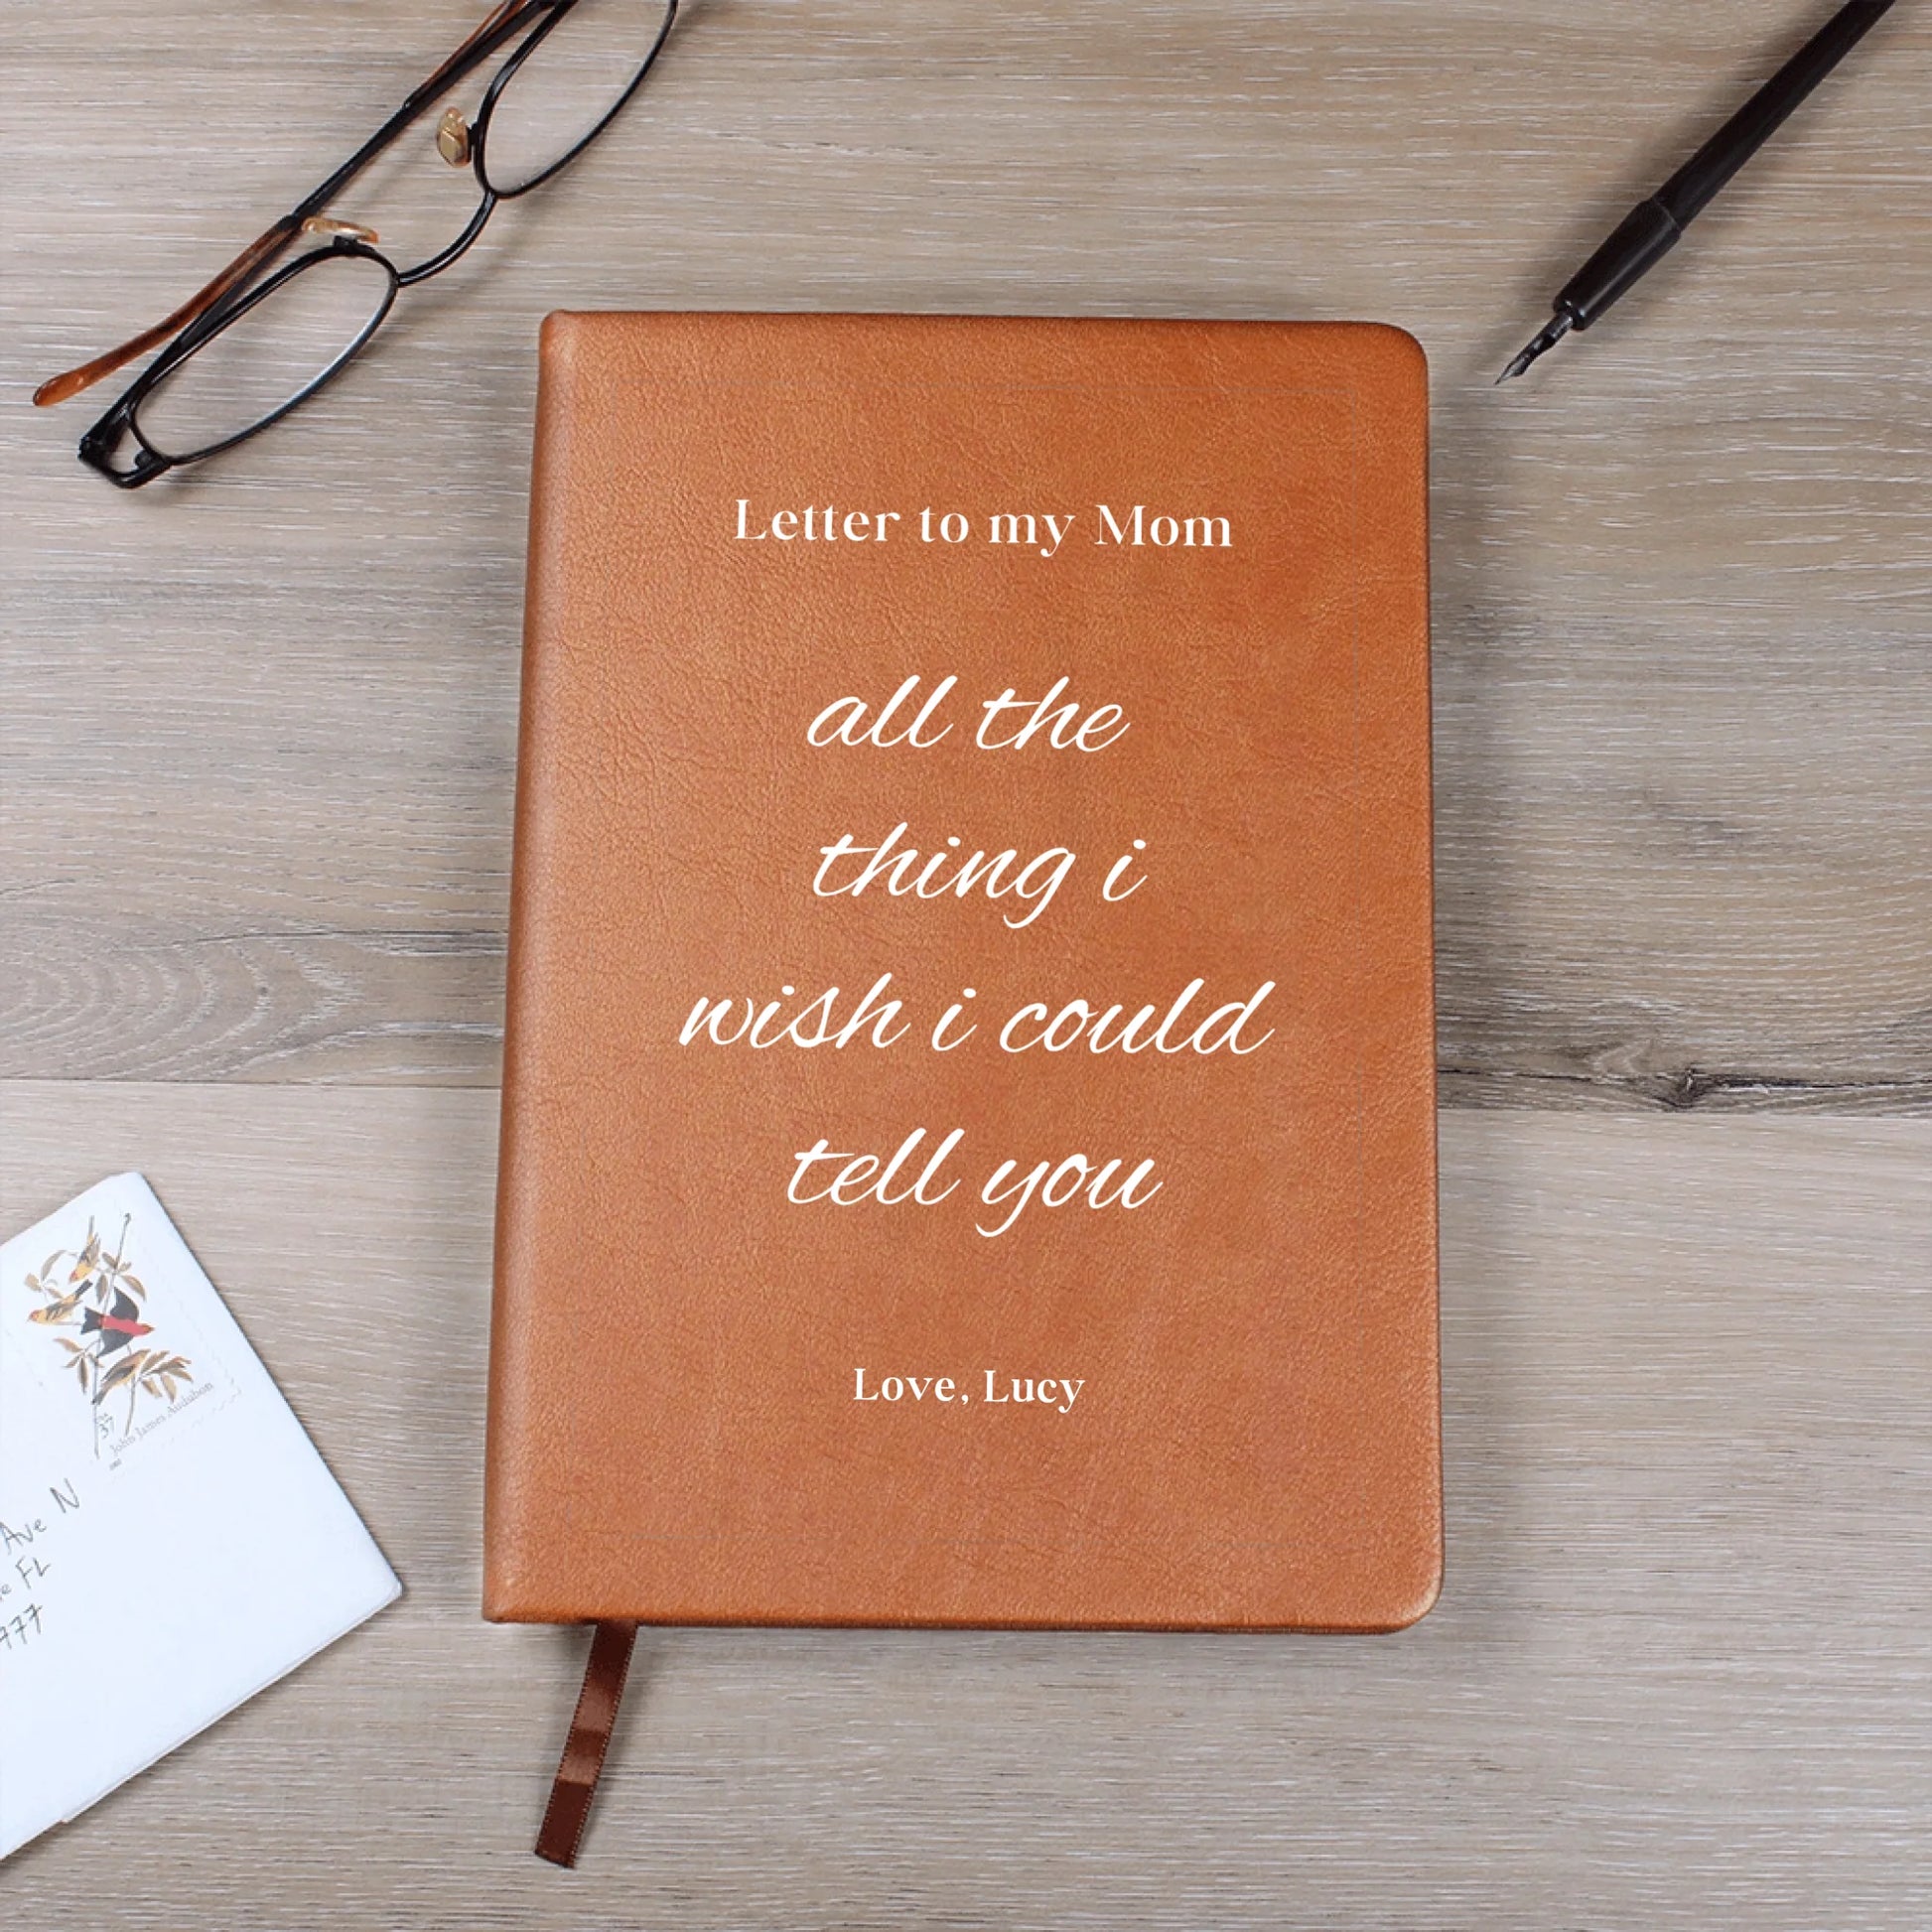 Letter to my Mom
all the
thing i
wish i could
tell you
Love, Lucy
37
John James Audubon
Ave N
FL
777